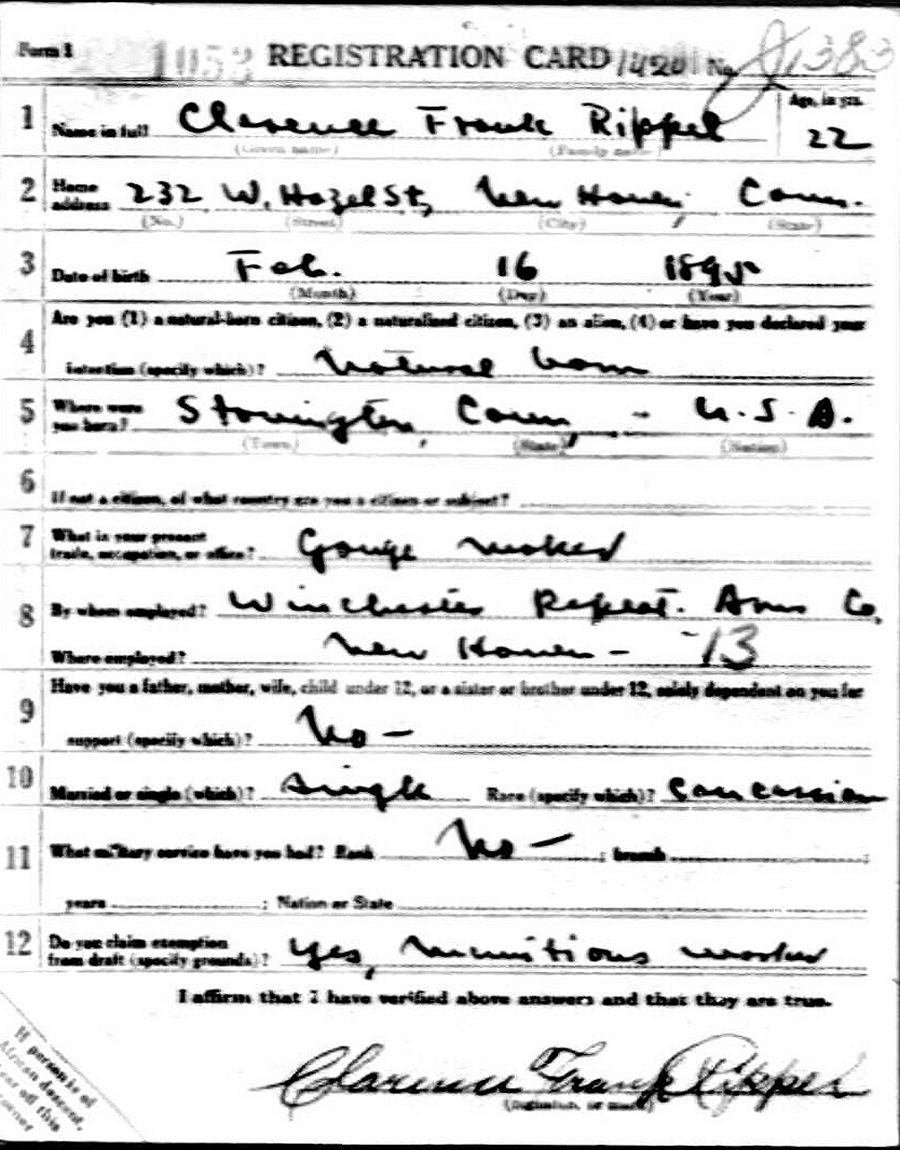 Form 1 1053 REGISTRATION CARD 1420 No. 1383
1 Name in full Clarence Frank Rippel Age, in yrs. 22
(Given name) (Family name)
2 Home address 232 W. Hazel St, New Haven, Conn.
(No.) (Street) (City) (State)
3 Date of birth Feb. 16 1895
(Month) (Day) (Year)
4 Are you (1) a natural-born citizen, (2) a naturalized citizen, (3) an alien, (4) or have you declared your
intention (specify which)? Natural born
5 Where were you born? Stonington, Conn, - U.S.A.
(Town) (State) (Nation)
6 If not a citizen, of what country are you a citizen or subject?
7 What is your present trade, occupation, or office? Gauge maker
8 By whom employed? Winchester Repeat. Arms Co,
Where employed? New Haven - 13
9 Have you a father, mother, wife, child under 12, or a sister or brother under 12, solely dependent on you for
support (specify which)? No -
10 Married or single (which)? Single Race (specify which)? Caucassian
11 What military service have you had? Rank No - ; branch ;
years ; Nation or State
12 Do you claim exemption from draft (specify grounds)? Yes, munitions worker
I affirm that I have verified above answers and that they are true.
Clarence Frank Rippel
(Signature or mark)
If person is of
African descent,
tear off this
corner